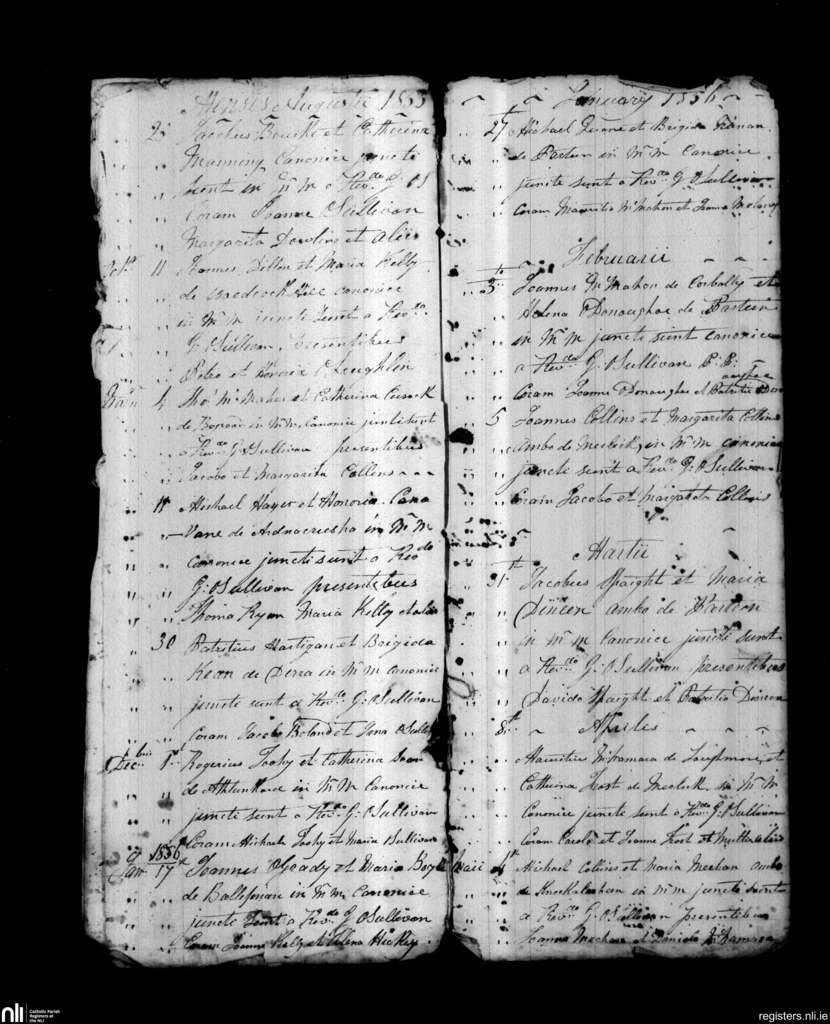 Mensis Augustii 1855
2 Jacobus Bourke et Catherina
Canonice juncti
sunt in Mm a Revdo G. OS
Coram Joanne OSullivan
Margarita Dowling et aliis
11 Joannes Dillon et Maria Kelly
de canonice
in Mm juncti sunt a Revdo
G. OSullivan, presentibus
Petro et Honoria OLoughlin
4 Thos McMahon et Catherina
de in Mm Canonice juncti sunt
a Revdo G OSullivan presentibus
Jacobo et Margarita Collins
11 Michael Hayes et Honoria
de Ardnacrusha in Mm
canonice juncti sunt a Revdo
G. OSullivan presentibus
Thoma Ryan Maria Kelly et aliis
30 Patritius Hartigan et Brigida
Kean de Derra in Mm canonice
juncte sunt a Revdo G. OSullivan
Coram Jacobo Boland et
Decbris 1st Rogerius Toohy et Catherina
de Athlunkard in Mm Canonice
juncte sunt a Revdo G. OSullivan
Coram Michaele Toohy et Maria Sullivan
1856
Jan 17 Joannes OGrady et Maria
de in Mm Canonice
juncte sunt a Revdo G OSullivan
Coram Joanne Kelly et Helena Hickey
January 1856
27 Michael et Brigida
de Parteen in Mm Canonice
juncte sunt a Revdo G. OSullivan
Coram Mauritio McMahon et Joanna Molony
Februarii
3 Joannes McMahon de Corbally et
Helena ODonoughoe de Parteen
in Mm juncte sunt canonice
a Revdo G. OSullivan P.P.
Coram Joanne Donoughoe et Patritio
5 Joannes Collins et Margarita Collins
Ambo de Meelick, in Mm canonice
juncte sunt a Revdo G. OSullivan
Coram Jacobo et Margareta Collins
Martii
31st Jacobus Spaight et Maria
Dineen ambo de Parteen
in Mm Canonice juncte sunt
a Revdo G. OSullivan presentibus
Davido Spaight et Patritio Dineen
8th Aprilis
Mauritius McNamara de et
Catherina Frost de Meelick in Mm
Canonice juncte sunt a Revdo G. OSullivan
Coram et Joanne Frost et Multis aliis
Maii 4th Michael Collins et Maria Meehan ambo
de Knockalisheen in Mm juncte sunt
a Revdo G. OSullivan presentibus
Joanne Meehan et Daniele McNamara
nli
Catholic Parish
Registers at
the NLI
registers.nli.ie